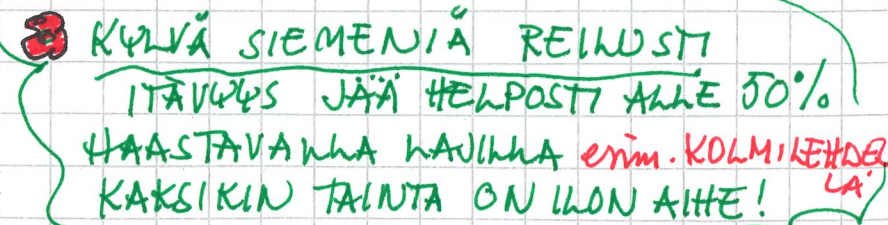 3 KYLVÄ SIEMENIÄ REILUSTI
ITÄVYYS JÄÄ HELPOSTI ALLE 50%
HAASTAVALLA LAJILLA esim. KOLMILEHDEL
LÄ
KAKSIKIN TAINTA ON ILON AIHE!